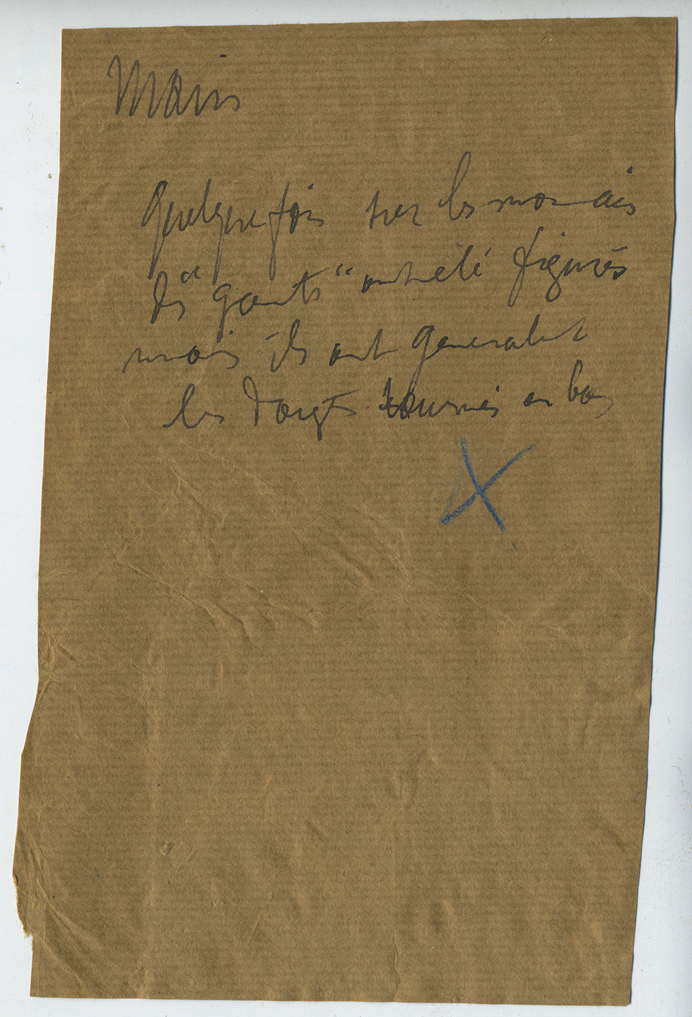 Mains
Quelquefois sur les monnaies
des "gants" ont été figurés
mais ils ont generalet
les doigts tournés en bas